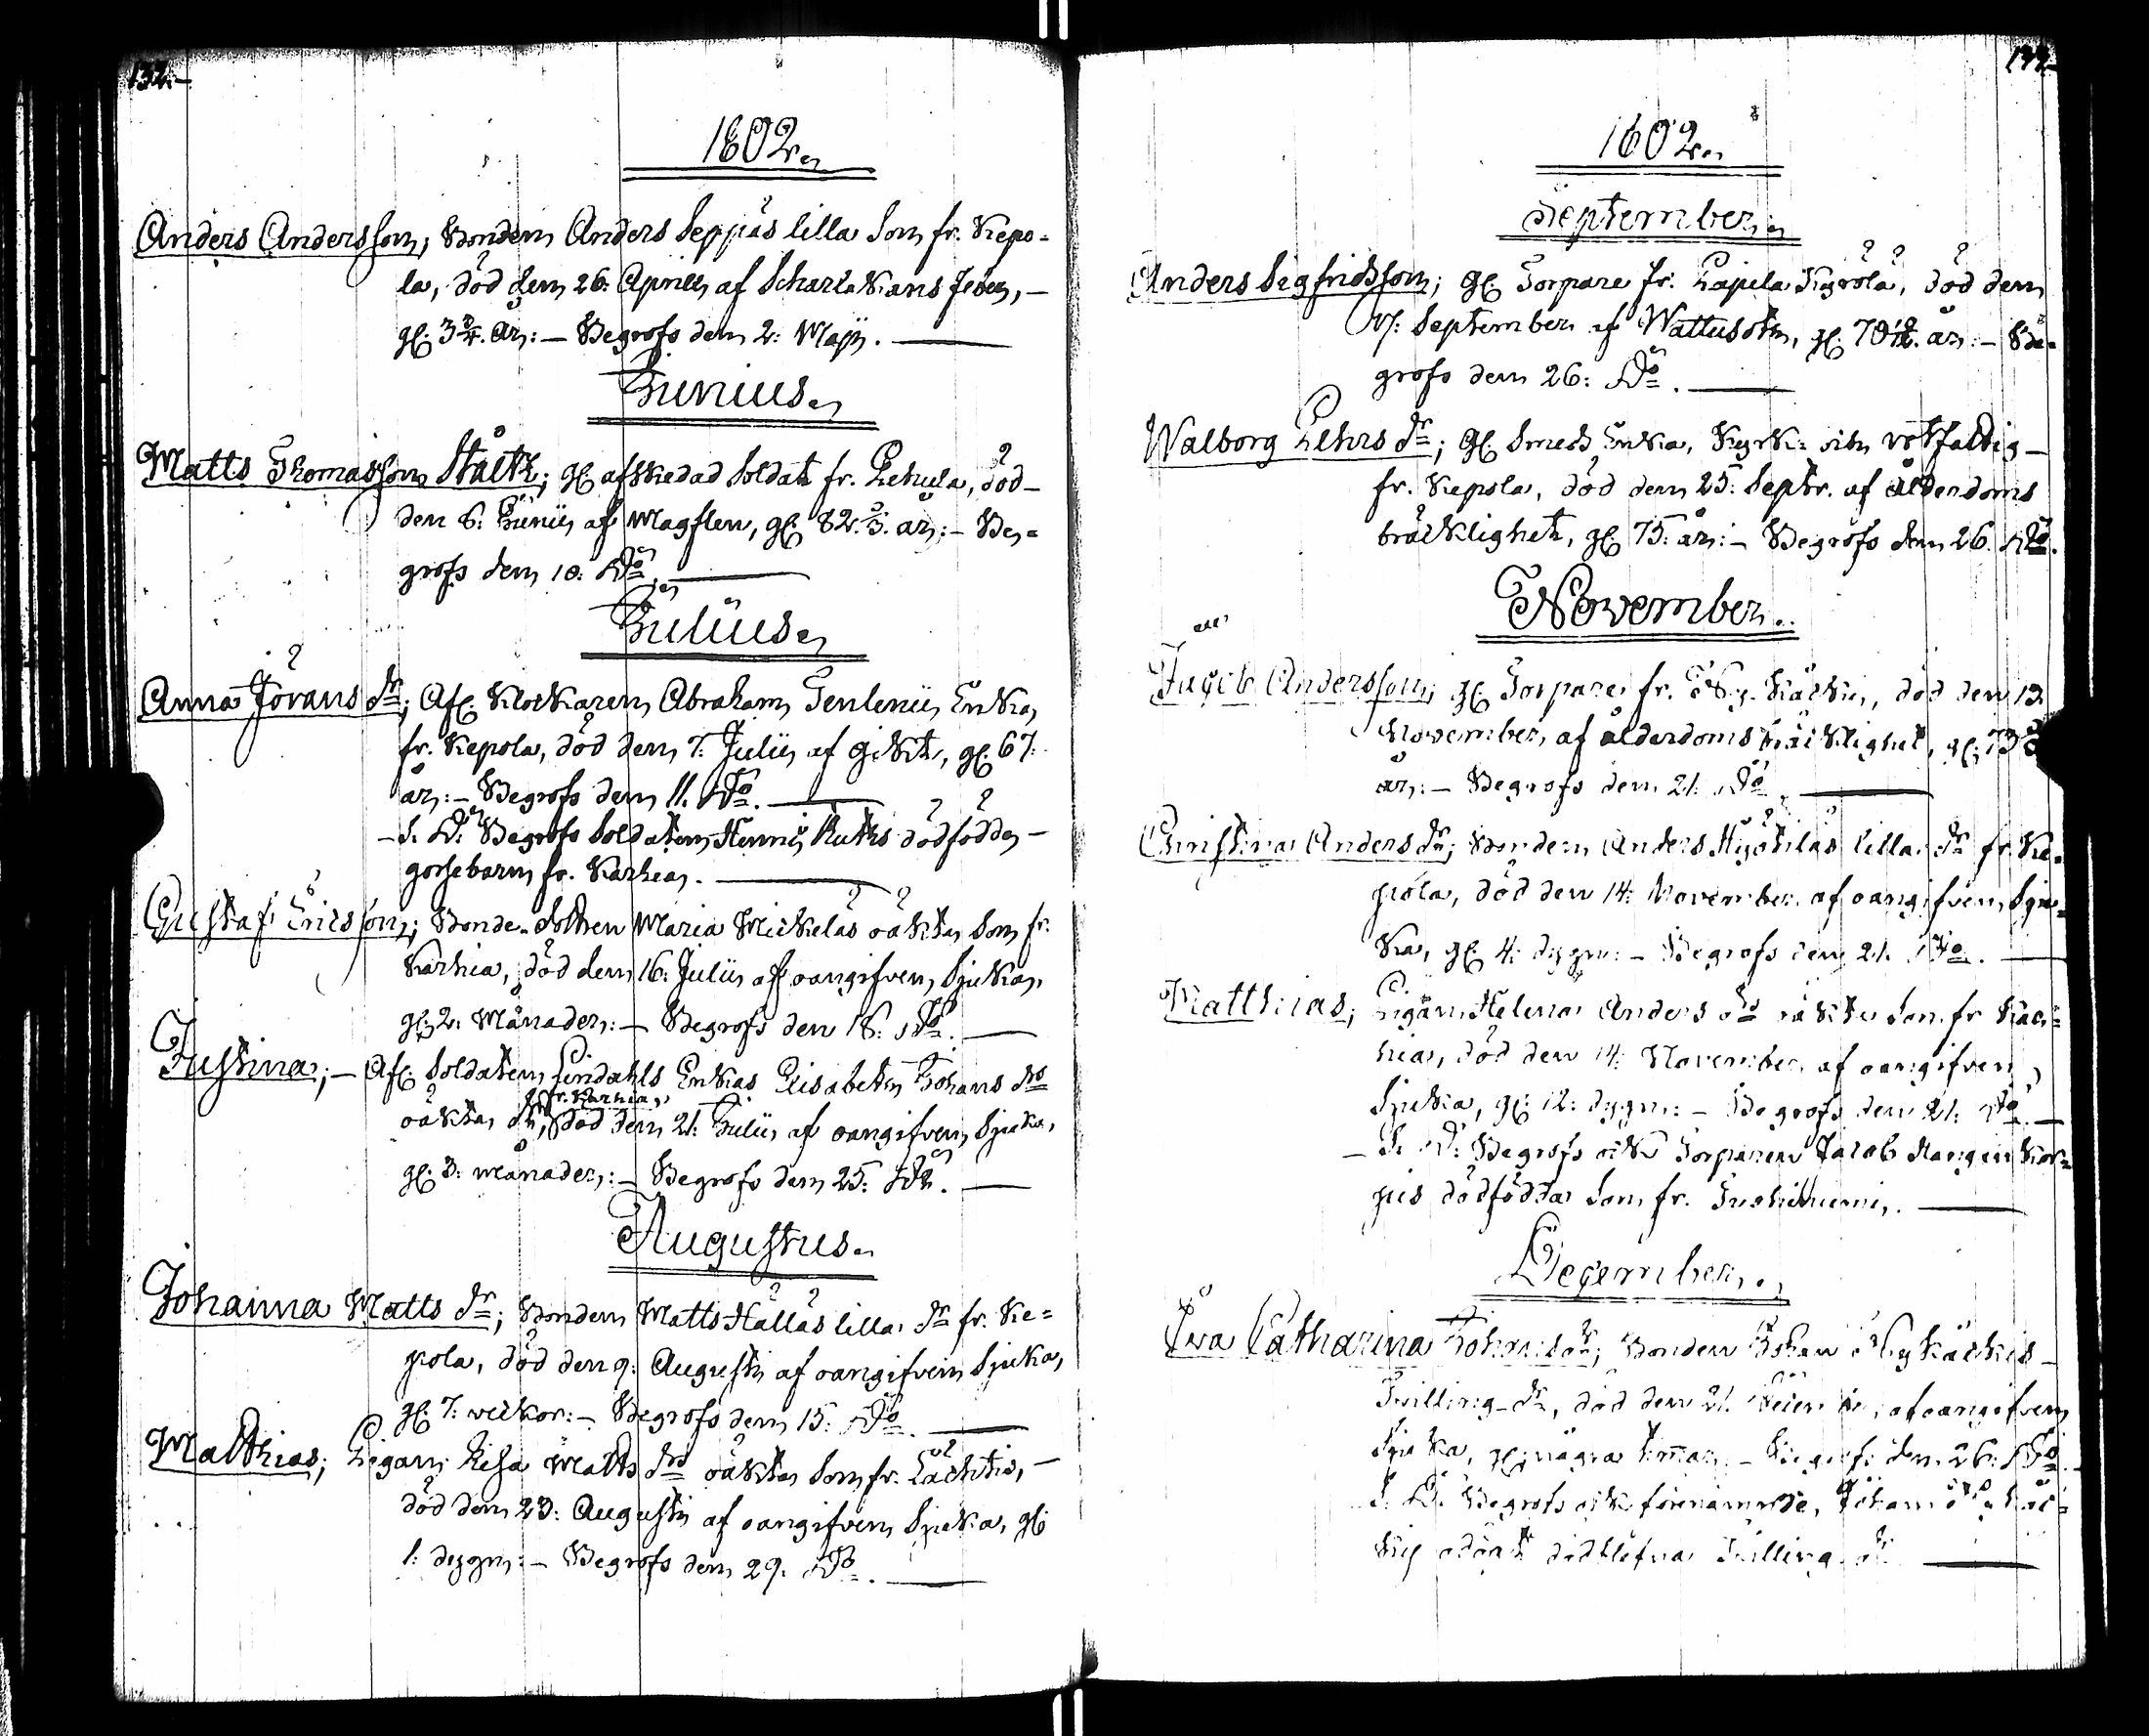 132.
1802.
Anders Andersson; Bonden Anders Seppäs lilla Son fr. Kepo=
la, död den 26. Aprill af Scharlakans feber, —
gl. 3 3/4. år: — Begrofs den 2: Maji. —
Junius.
Matts Thomasson Stålt; gl. afskedad Soldat fr. Lehula, död —
den 6: Junii af Magflen, gl. 82 2/3. år: — Be=
grofs den 10: Do. —
Julius.
Anna Jörans dr; Afl. Klockaren Abraham Tenlenii Enka
fr. Kepola, död den 7: Julii af Gikt, gl. 67.
år: — Begrofs den 11. Do. —
— S. D. Begrofs Soldaten Henric Ruths dödfödde —
gossebarn fr. Karhia. —
Gustaf Ericsson; Bonde-dottren Maria Mickelas oäkta Son fr.
Karhia, död den 16: Julii af oangifven Sjuka,
gl. 2: Månader: — Begrofs den 18: Do. —
Justina; — Afl. Soldaten Lindahls Enkas Elisabeth Johans drs
fr. Karhia,
oäkta dr, död den 21: Julii af oangifven Sjuka,
gl. 3: månader: — Begrofs den 25: Do. —
Augustus.
Johanna Matts dr; Bonden Matts Hallas lilla dr fr. Ke=
pola, död den 9: Augusti af oangifven Sjuka,
gl. 7: veckor: — Begrofs den 15: Do. —
Matthias; Pigan Lisa Matts drs oäkta Son fr. Lachtis, —
död den 23: Augusti af oangifven Sjuka, gl.
1: dygn: — Begrofs den 29. Do. —
1802.
September.
Anders Sigfridsson; gl. Torpare fr. Lajela Kyrölä, död den
September af Wattusot, gl. år: — Be=
grofs den 26: Do. —
Walborg Lehrs dr; gl. Smeds Enka, Kyrk= och rotfaldig —
fr. Kepola, död den 25: Septr. af ålderdoms
bräcklighet, gl. 75: år: — Begrofs den 26. Do.
November.
Jacob Andersson; gl. Torpare fr. Käckis, död den 13
November, af ålderdoms bräcklighet, gl. 73
år: — Begrofs den 21. Do. —
Christina Anders dr; Bonden Anders Hyötiläs lilla dr fr. Ke=
pola, död den 14: November af oangifven Sju=
ka, gl. 4: dygn: — Begrofs den 21. Do. —
Matthias; Pigan Helena Anders drs oäkta Son fr. Kar=
hia, död den 14: November af oangifven
Sjuka, gl. 12: dygn: — Begrofs den 21: Do. —
— S. D: Begrofs ock Torparen Jacob
dödfödda Son fr. —
December.
Eva Catharina Johans dr; Bonden Johan Käckis —
Tvilling-dr, död den 21. af oangifven
Sjuka, gl. några timar. — Begrofs den 26: Do. —
S. D. Begrofs ock förenämnde, Johan
odöpt dödblefna Tvilling dr. —